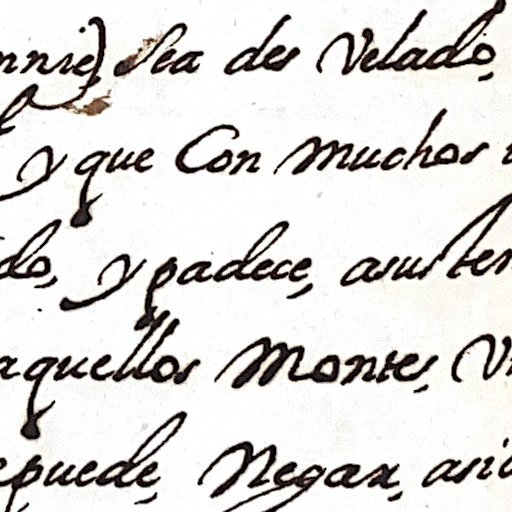 nnie) Sea des Velado,
y que Con muchos
do, y padece, asus ter
aquellos Montes, V
epuede, Negar, asi